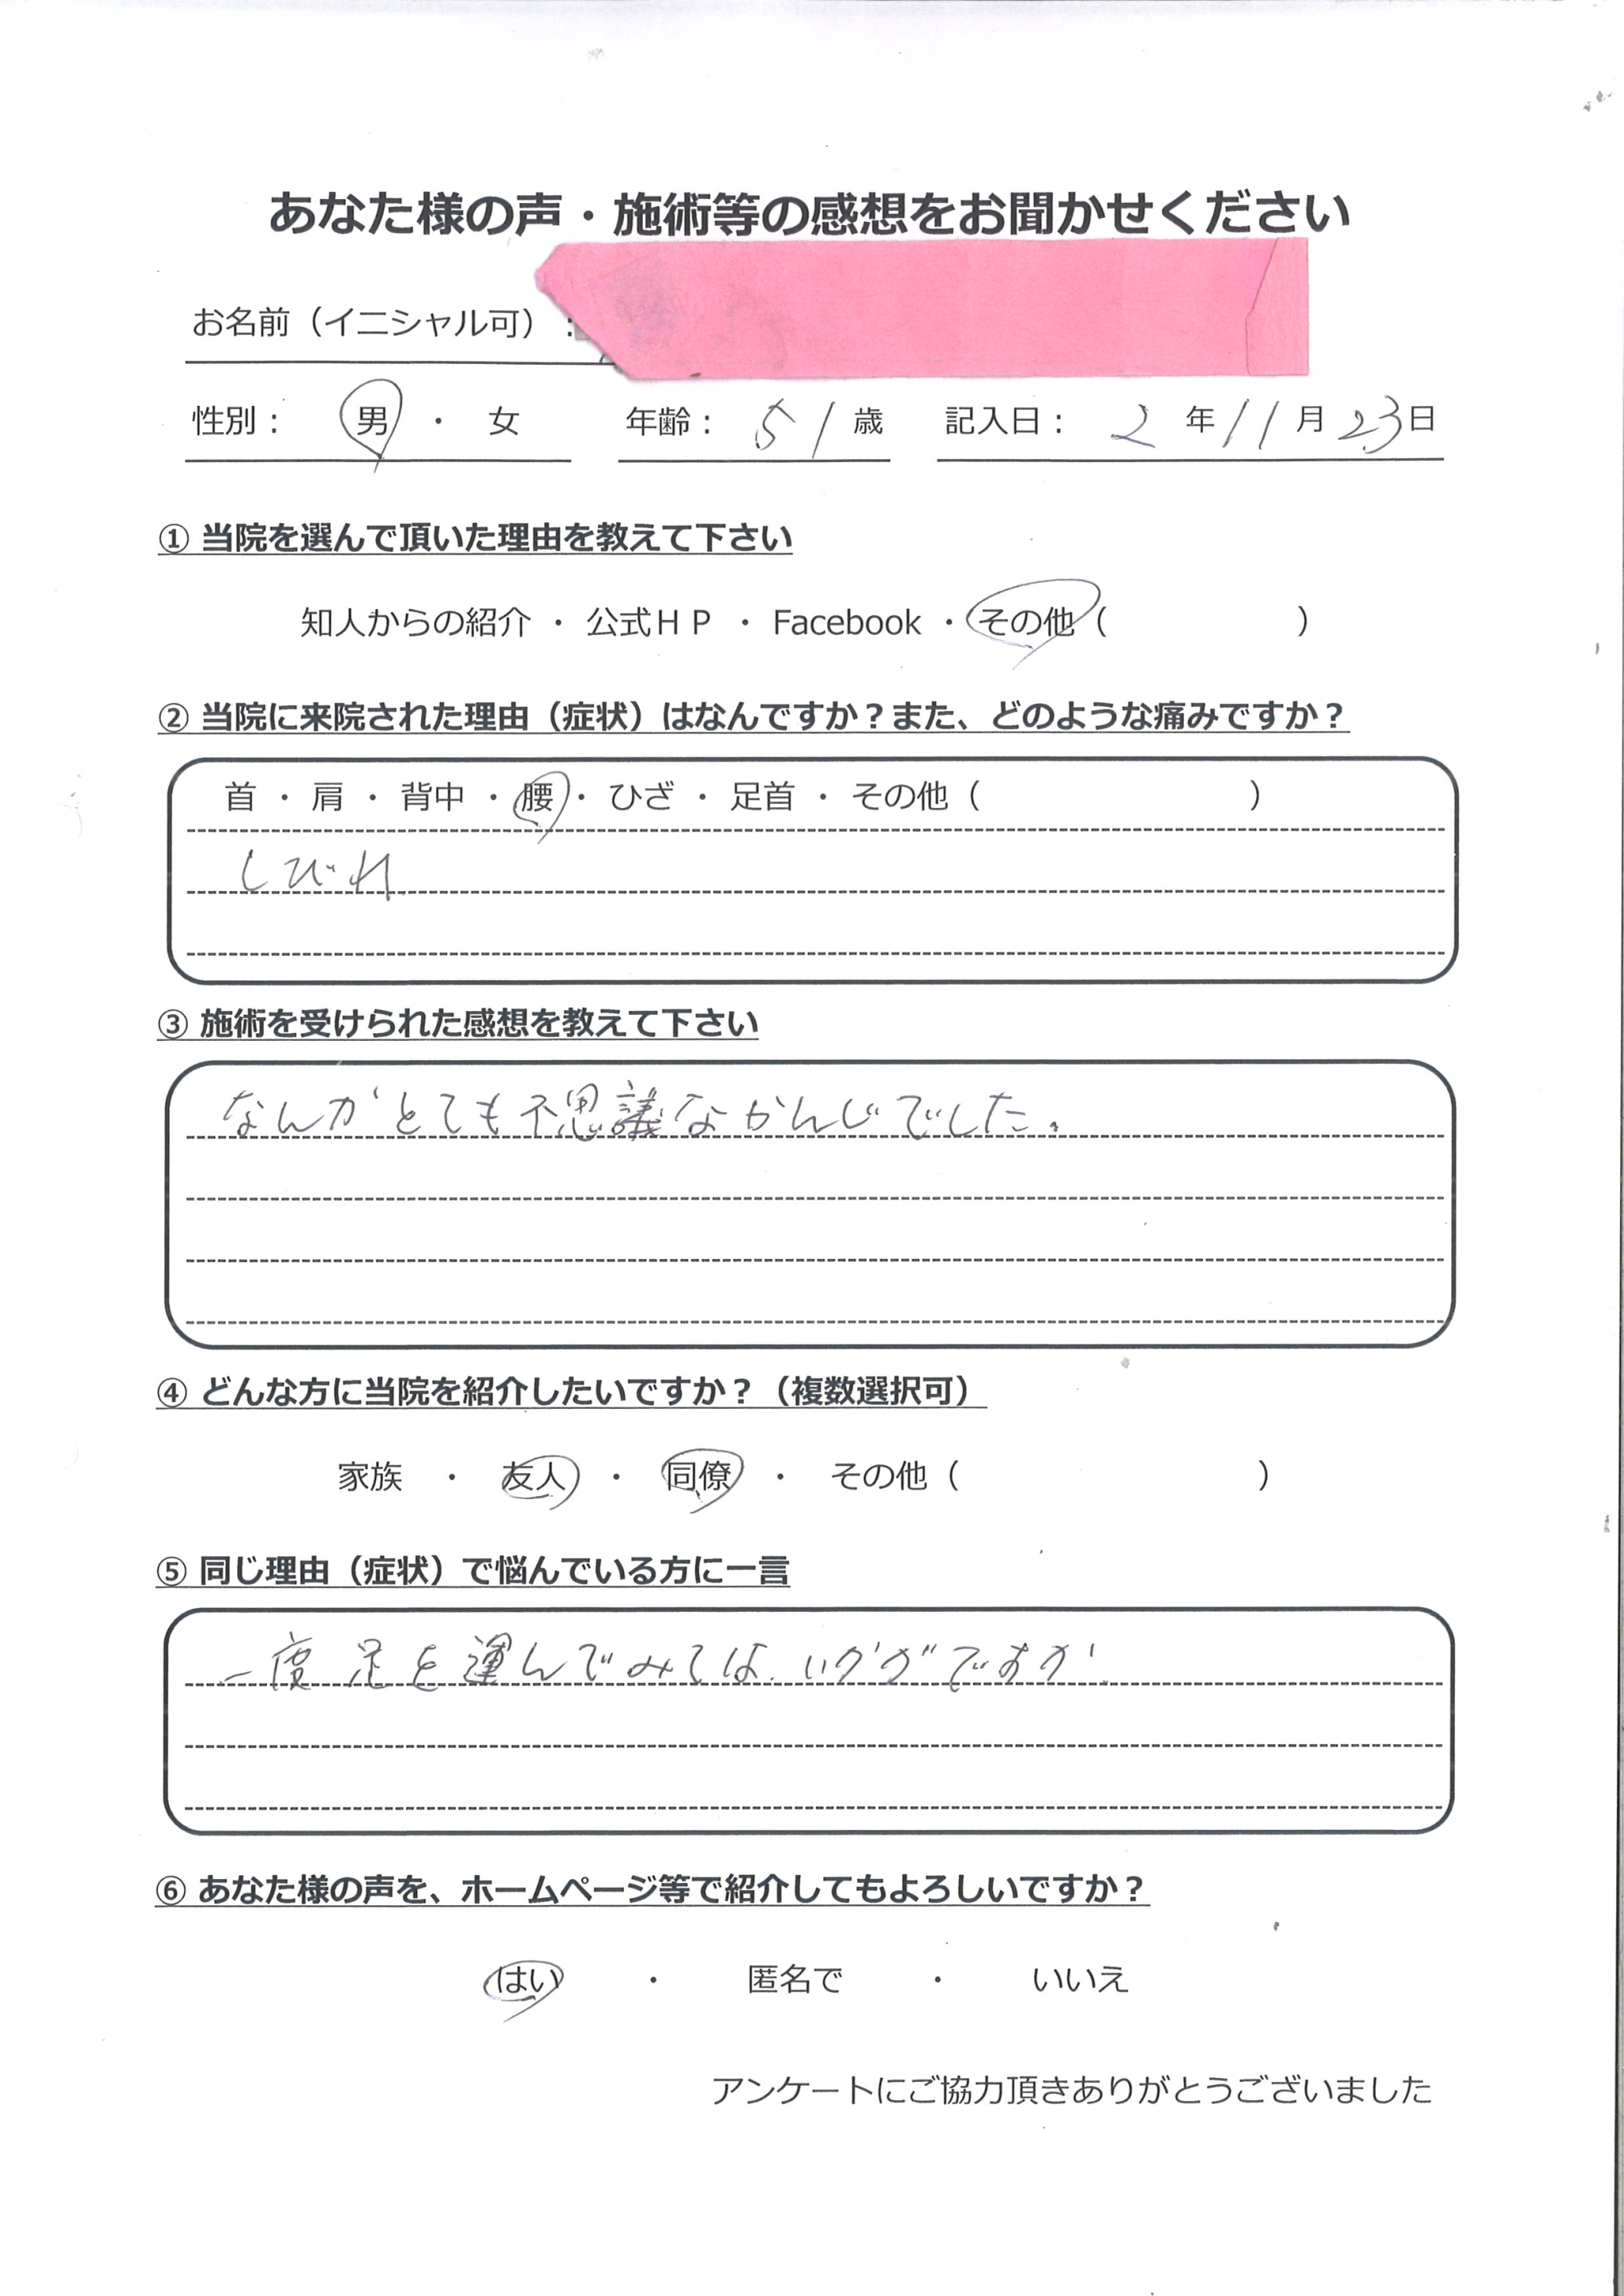 あなた様の声・施術等の感想をお聞かせください
お名前（イニシャル可）：
性別： 男 ・ 女 年齢： 51 歳 記入日： 2 年 11 月 23 日
① 当院を選んで頂いた理由を教えて下さい
知人からの紹介 ・ 公式ＨＰ ・ Facebook ・ その他（ ）
② 当院に来院された理由（症状）はなんですか？また、どのような痛みですか？
首 ・ 肩 ・ 背中 ・ 腰 ・ ひざ ・ 足首 ・ その他（ ）
しびれ
③ 施術を受けられた感想を教えて下さい
なんかとても不思議なかんじでした。
④ どんな方に当院を紹介したいですか？（複数選択可）
家族 ・ 友人 ・ 同僚 ・ その他（ ）
⑤ 同じ理由（症状）で悩んでいる方に一言
一度足を運んでみては、いかがですか
⑥ あなた様の声を、ホームページ等で紹介してもよろしいですか？
はい ・ 匿名で ・ いいえ
アンケートにご協力頂きありがとうございました